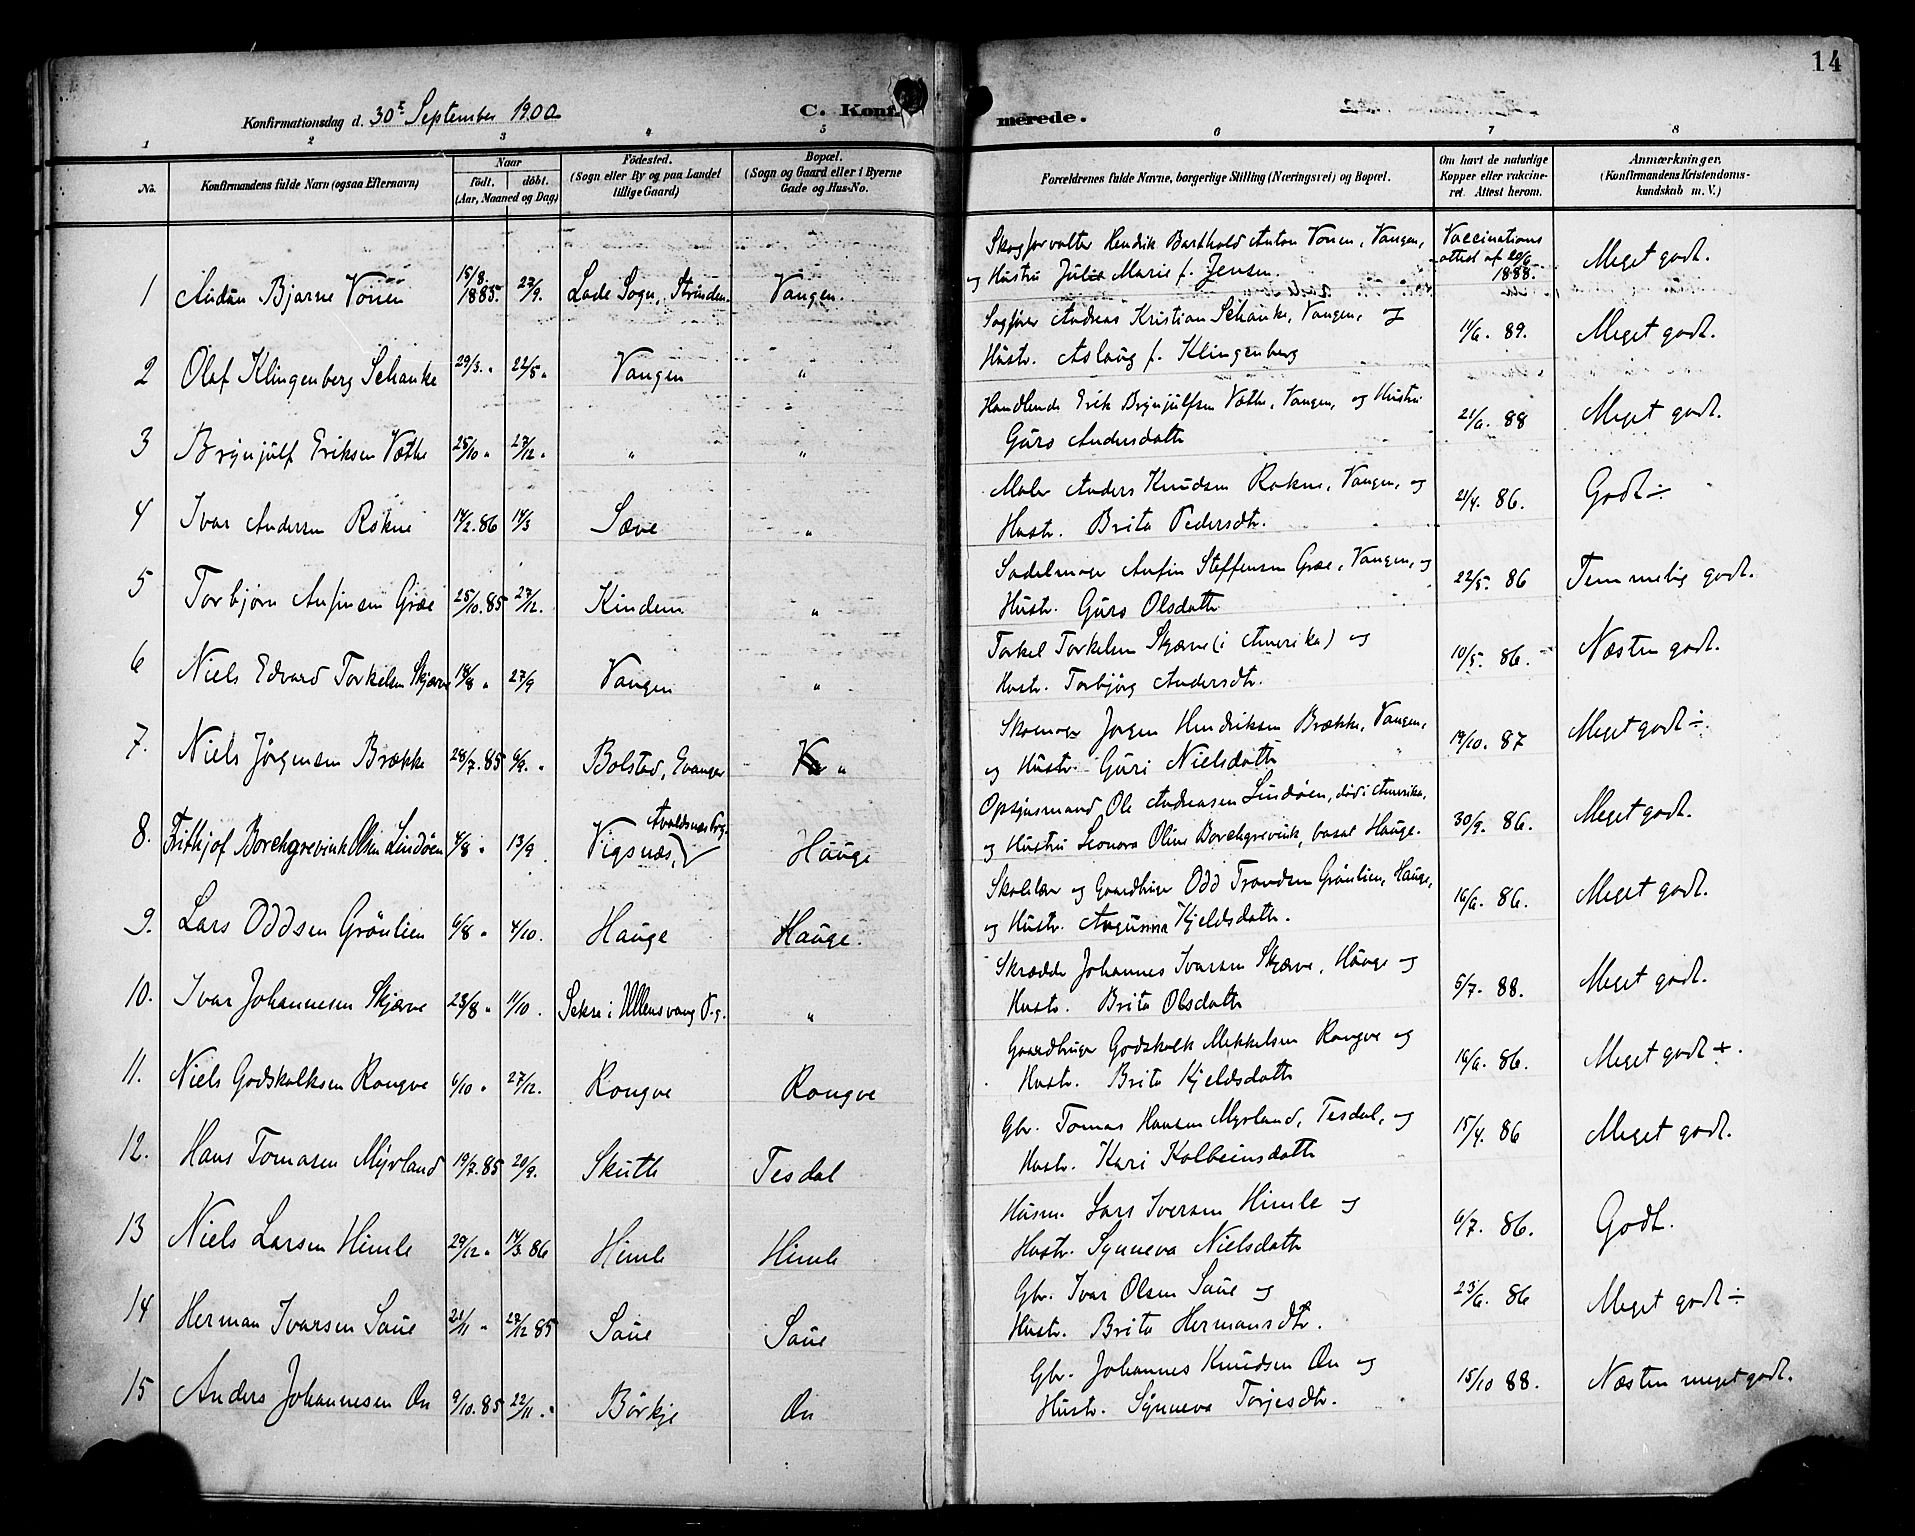 14
Konfirmationsdag d. 30t September 1900
C. Konf.
merede.
1 2 3 4 5 6 7 8
No.
Konfirmandens fulde Navn (ogsaa Efternavn)
Naar
født. døbt.
(Aar, Maaned og Dag)
Fødested.
(Sogn eller By og paa Landet
tillige Gaard)
Bopæl.
(Sogn og Gaard eller i Byerne
Gade og Hus-No.
Forældrenes fulde Navne, borgerlige Stilling (Næringsvei) og Bopæl.
Om havt de naturlige
Kopper eller vakcine-
ret. Attest herom.
Anmærkninger.
(Konfirmandens Kristendoms-
kundskab m. V.)
Skogforvalter Hendrik Barthold Anton Vonen, Vangen,
og Hustru Julie Marie f. Jensen.
Vaccinations
attest af 29/6
1888.
Meget godt.
1 Audun Bjarne Vonen 18/8. 1885. 27/9. Lade Sogn, Strinden. Vangen.
Sagfører Andreas Kristian Schanke, Vangen, og
Hustr. Aslaug f. Klingenberg 11/6. 89. Meget godt.
2 Olaf Klingenberg Schanke 29/3. " 22/5 " Vangen "
Handlende Erik Brynjulfsen Væthe, Vangen, og Hustru
Guro Andersdatte 21/6. 88 Meget godt.
3 Brynjulf Eriksen Væthe 25/10 " 27/12 " " "
Maler Anders Knudsen Rokne, Vangen, og
Hustr. Brita Pedersdtr. 21/4. 86. Godt ÷
4 Ivar Andersen Rokne 14/2. 86 14/3 Sæve "
Sadelmager Anfin Steffensen Græe, Vangen, og
Hustr. Guro Olsdatte 22/5. 86 Temmelig godt.
5 Torbjørn Anfinsen Græe 25/10. 85 27/12. Kindem "
Torkel Torkelsen Skjærve (i Amerika) og
Hustr. Torbjørg Andersdtr. 10/5. 86. Næsten godt.
6 Niels Edvard Torkelsen Skjærve 18/8 " 27/9 Vangen "
Skomager Jørgen Hendriksen Brække, Vangen,
og Hustr. Guri Nielsdatte 19/10. 87 Meget godt ÷
7. Niels Jørgensen Brække 28/7. 85 6/9. " Bolstad, Evanger "
Opsynsmand Ole Andreasen Lindøen, død i Amerika,
og Hustru Leonora Oline Borchgrevink, bosat Hauge. 30/9. 86. Meget godt.
8. Frithjof Borchgrevink Olsen Lindøen 4/8 " 13/9 Vigsnæs, Avaldsnæs Prg. Hauge
Skolelær. og Gaardbruger Odd Trondsen Grønlien, Hauge,
og Hustr. Kjeldsdatte. 16/6. 86. Meget godt.
9. Lars Oddsen Grønlien 6/8 " 4/10. Hauge Hauge.
Skrædder Johannes Ivarsen Skjærve, Hauge og
Hustr. Brita Olsdatte 6/7. 88. Meget godt.
10. Ivar Johannesen Skjærve 23/8 " 11/10. Sekse i Ullensvang P.g. "
Gaardbruger Godskalk Mikkelsen Rongve og
Hustr. Brita Kjeldsdatte 16/6. 86. Meget godt ÷.
11. Niels Godskalksen Rongve 6/10 " 27/12. Rongve Rongve
Gbr. Tomas Hansen Myrland, Tesdal, og
Hustr. Kari Kolbeinsdatte 15/4. 86 Meget godt.
12. Hans Tomasen Myrland 19/7. 85 20/9. Skutle Tesdal
Husm. Lars Iversen Himle og
Hustr. Synneva Nielsdatte 6/7. 86. Godt.
13 Niels Larsen Himle 29/12 " 14/3 86 Himle Himle
Gbr. Ivar Olsen Saue og
Hustr. Brita Hermansdtr. 23/6. 86 Meget godt ÷
14 Herman Ivarsen Saue 21/11 " 27/12 85 Saue Saue
Gbr. Johannes Knudsen Øn og
Hustr. Synneva Torjesdtr. 15/10 88. Næsten meget godt.
15 Anders Johannesen Øn 9/10. 85 22/11. " Børkje Øn